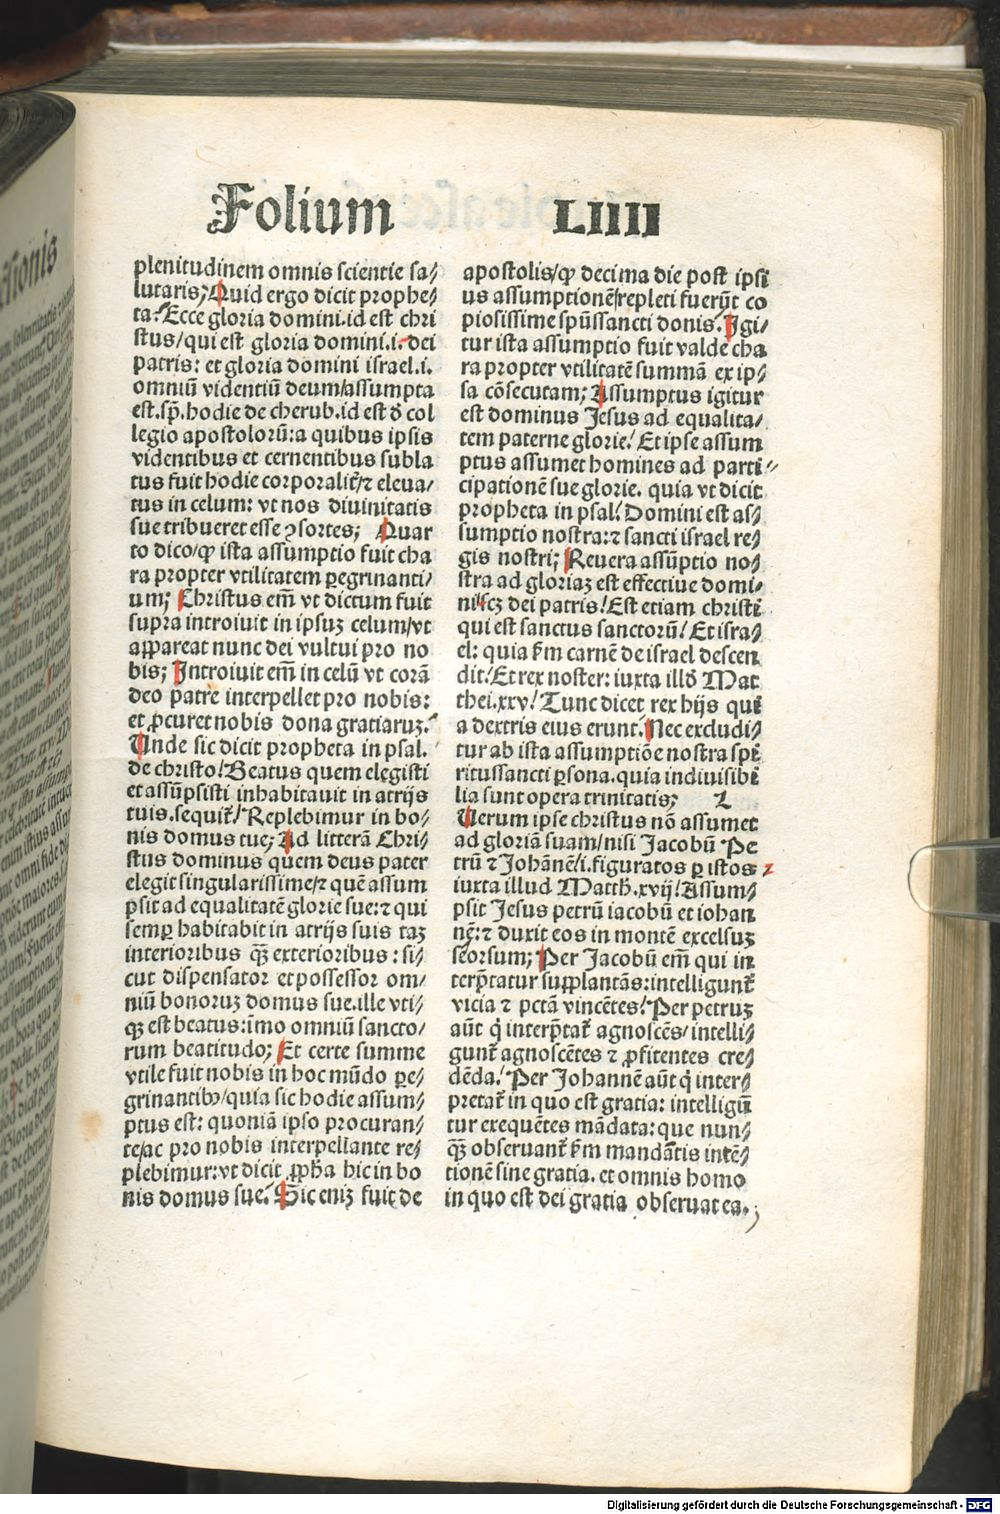 Folium LIIII
plenitudinem omnis scientie sa⸗
lutaris; Quid ergo dicit prophe⸗
ta? Ecce gloria domini.id est chri
stus/qui est gloria domini.i. dei
patris: et gloria domini israel.i.
omniū videntiū deum/assumpta
est.sp̄. hodie de cherub.id est ꝺ̄ col
legio apostolorū:a quibus ipsis
videntibus et cernentibus subla
tus fuit hodie corporalit̄/⁊ eleua/
tus in celum: vt nos diuinitatis
sue tribueret esse ꝯsortes; Quar
to dico/ꝙ ista assumptio fuit cha
ra propter vtilitatem ꝑegrinanti/
um; Christus em̄ vt dictum fuit
supra introiuit in ipsuꝫ celum/vt
aꝑpareat nunc dei vultui pro no
bis; Introiuit em̄ in celū vt corā
deo patre interpellet pro nobis:
et ꝓcuret nobis dona gratiaruꝫ.
Unde sic dicit propheta in psal.
de christo/ Beatus quem elegisti
et assūpsisti inhabitauit in atrijs
tuis.sequit̄/ Replebimur in bo/
nis domus tue; Ad litterā Chri/
stus dominus quem deus pater
elegit singularissime/⁊ quē assum
psit ad equalitatē glorie sue:⁊ qui
semꝑ habitabit in atrijs suis taꝫ
interioribus qꝫ̄ exterioribus: si/
cut dispensator et possessor om/
niū bonoruꝫ domus sue.ille vti/
qꝫ est beatus:imo omniū sancto/
rum beatitudo; Et certe summe
vtile fuit nobis in hoc mūdo ꝑe/
grinantibꝰ/quia sic hodie assum/
ptus est: quoniā ipso procuran/
te/ac pro nobis interpellante re/
plebimur:vt dicit ꝓph̄a hic in bo
nis domus sue. Sic eniꝫ fuit de
apostolis/ꝙ decima die post ipsi
us assumptionē/repleti fuerūt co
piosissime spūssancti donis. Igi/
tur ista assumptio fuit valde cha
ra propter vtilitatē summā ex ip/
sa cōsecutam; Assumptus igitur
est dominus Jesus ad equalita/
tem paterne glorie/ Et ipse assum
ptus assumet homines ad parti⸗
cipationē sue glorie. quia vt dicit
propheta in psal/ Domini est as/
sumptio nostra:⁊ sancti israel re/
gis nostri; Reuera assūptio no/
stra ad gloriaꝫ est effectiue domi/
ni scꝫ dei patris/ Est etiam christi
qui est sanctus sanctorū/ Et isra/
el: quia ẜm carnē de israel descen
dit/ Et rex noster: iuxta illꝺ̄ Mat
thei.xxv/ Tunc dicet rex hijs qui
a dextris eius erunt. Nec excludi/
tur ab ista assumptiōe nostra spi
ritussancti ꝑsona.quia indiuisibi
lia sunt opera trinitatis; L
Uerum ipse christus nō assumet
ad gloriā suam/nisi Jacobū Pe
trū ⁊ Johānē/i.figuratos ꝑ istos ⁊
iuxta illud Matth̄.xvij/ Assum/
psit Jesus petrū iacobū et iohan
nē:⁊ duxit eos in montē excelsuꝫ
seorsum; Per Jacobū em̄ qui in
terp̄tatur suꝑplantās:intelligunt̄
vicia ⁊ pctā vincētes/ Per petruꝫ
aūt q̇ interp̄tat̄ agnoscēs/intelli/
gunt̄ agnoscētes ⁊ ꝓfitentes cre/
dēda/ Per Johannē aūt q̇ inter/
pretat̄ in quo est gratia: intelligū
tur exequētes mādata: que nun/
qꝫ̄ obseruant̄ ẜm mandātis intē/
tionē sine gratia. et omnis homo
in quo est dei gratia obseruat ea.;
Digitalisierung gefördert durch die Deutsche Forschungsgemeinschaft - DFG